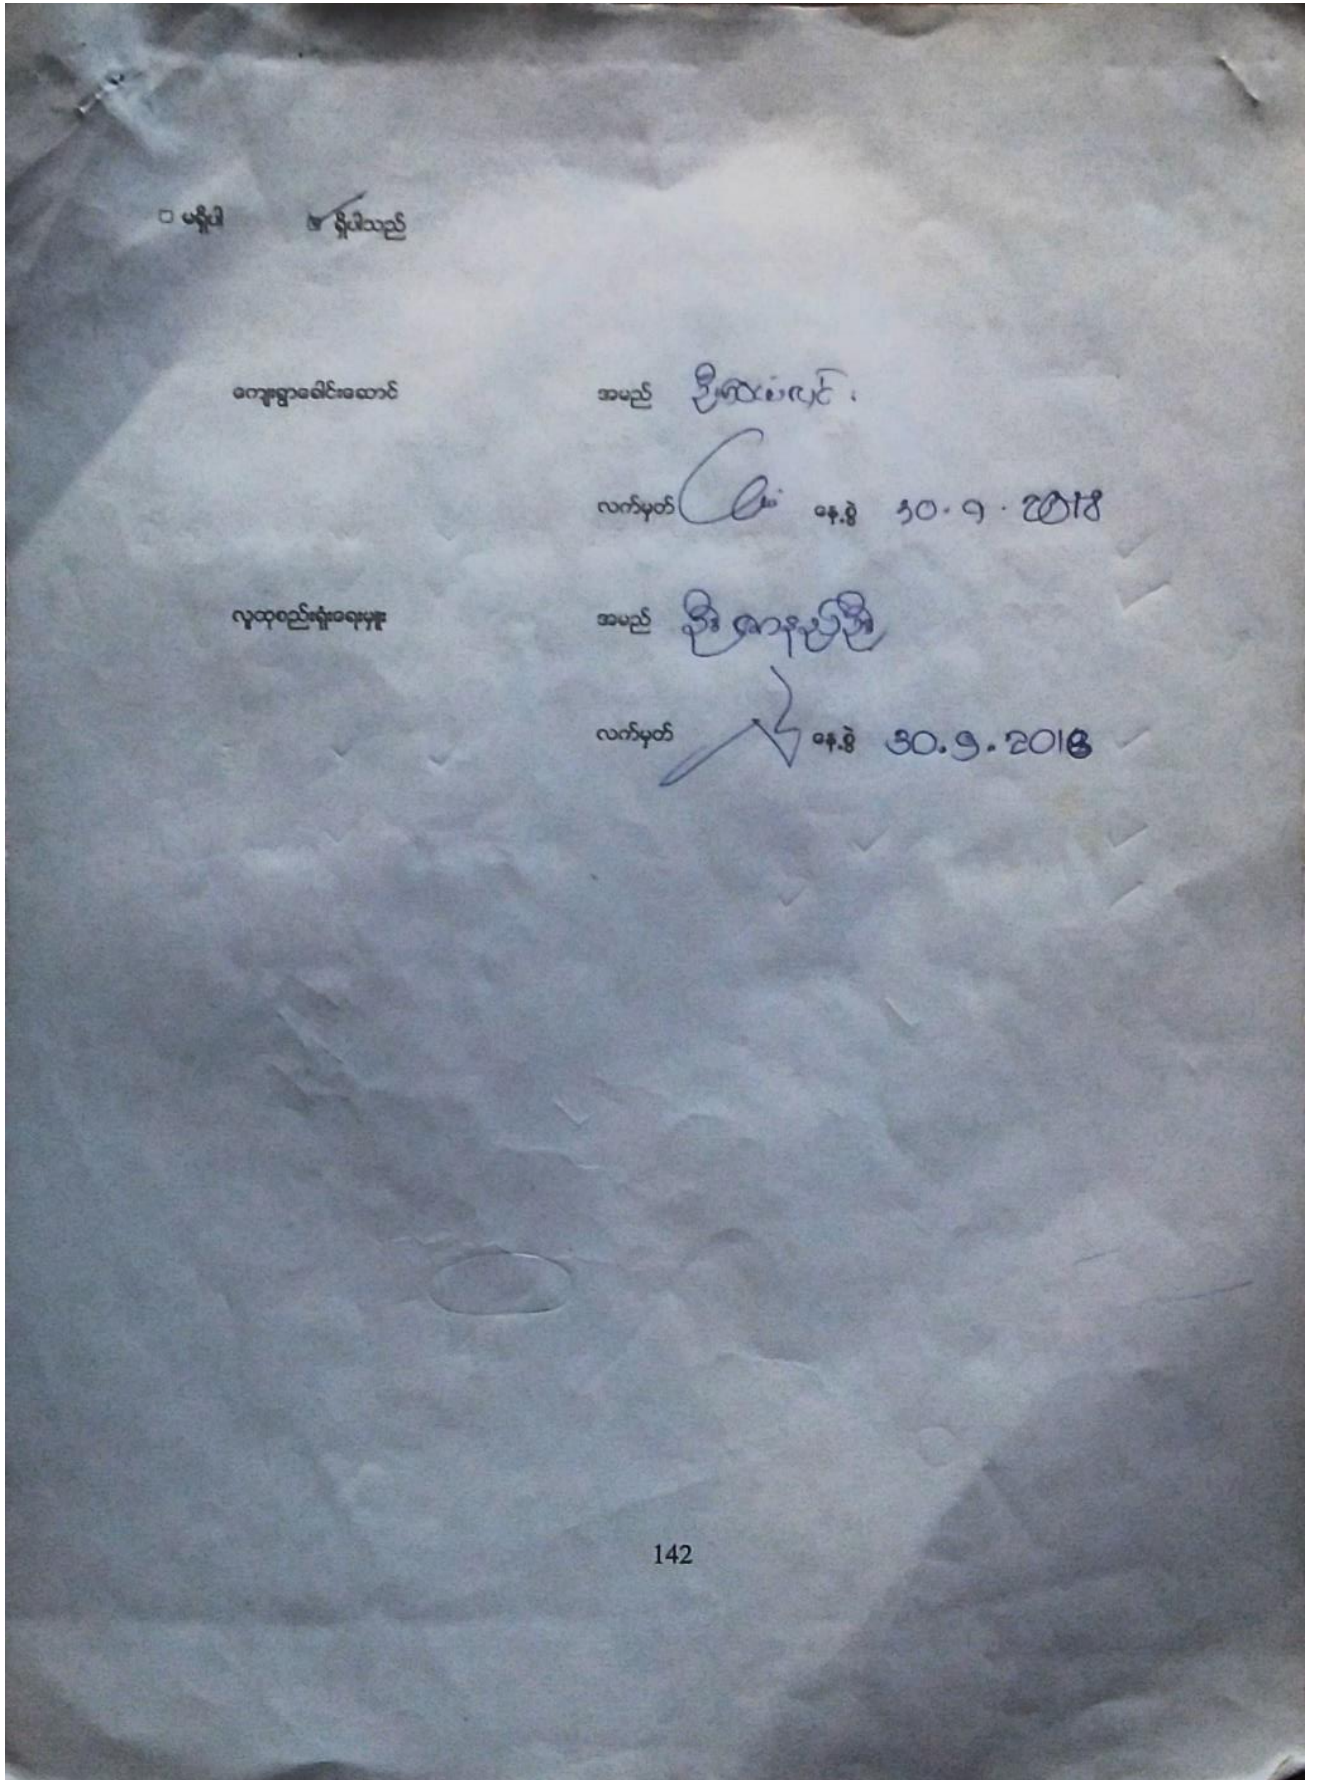 □ မရှိပါ ☑ ရှိပါသည်
ကျေးရွာခေါင်းဆောင် အမည်
လက်မှတ် နေ့စွဲ 30.9.2018
လူထုစည်းရုံးရေးမှူး အမည် ဦး
လက်မှတ် နေ့စွဲ 30.9.2018
142